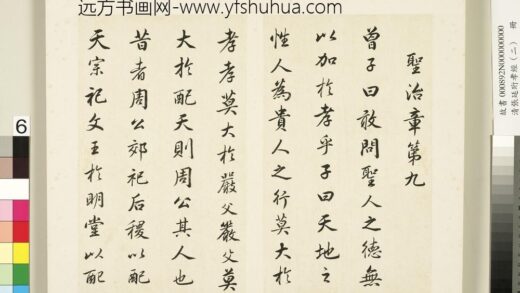 远方书画网-www.yfshuhua.com
聖治章第九
曾子曰敢問聖人之德無
以加於孝乎子曰天地之
性人為貴人之行莫大於
孝孝莫大於嚴父嚴父莫
大於配天則周公其人也
昔者周公郊祀后稷以配
天宗祀文王於明堂以配
故書 000892N000000000 冊
清張廷玙孝經（二）
6